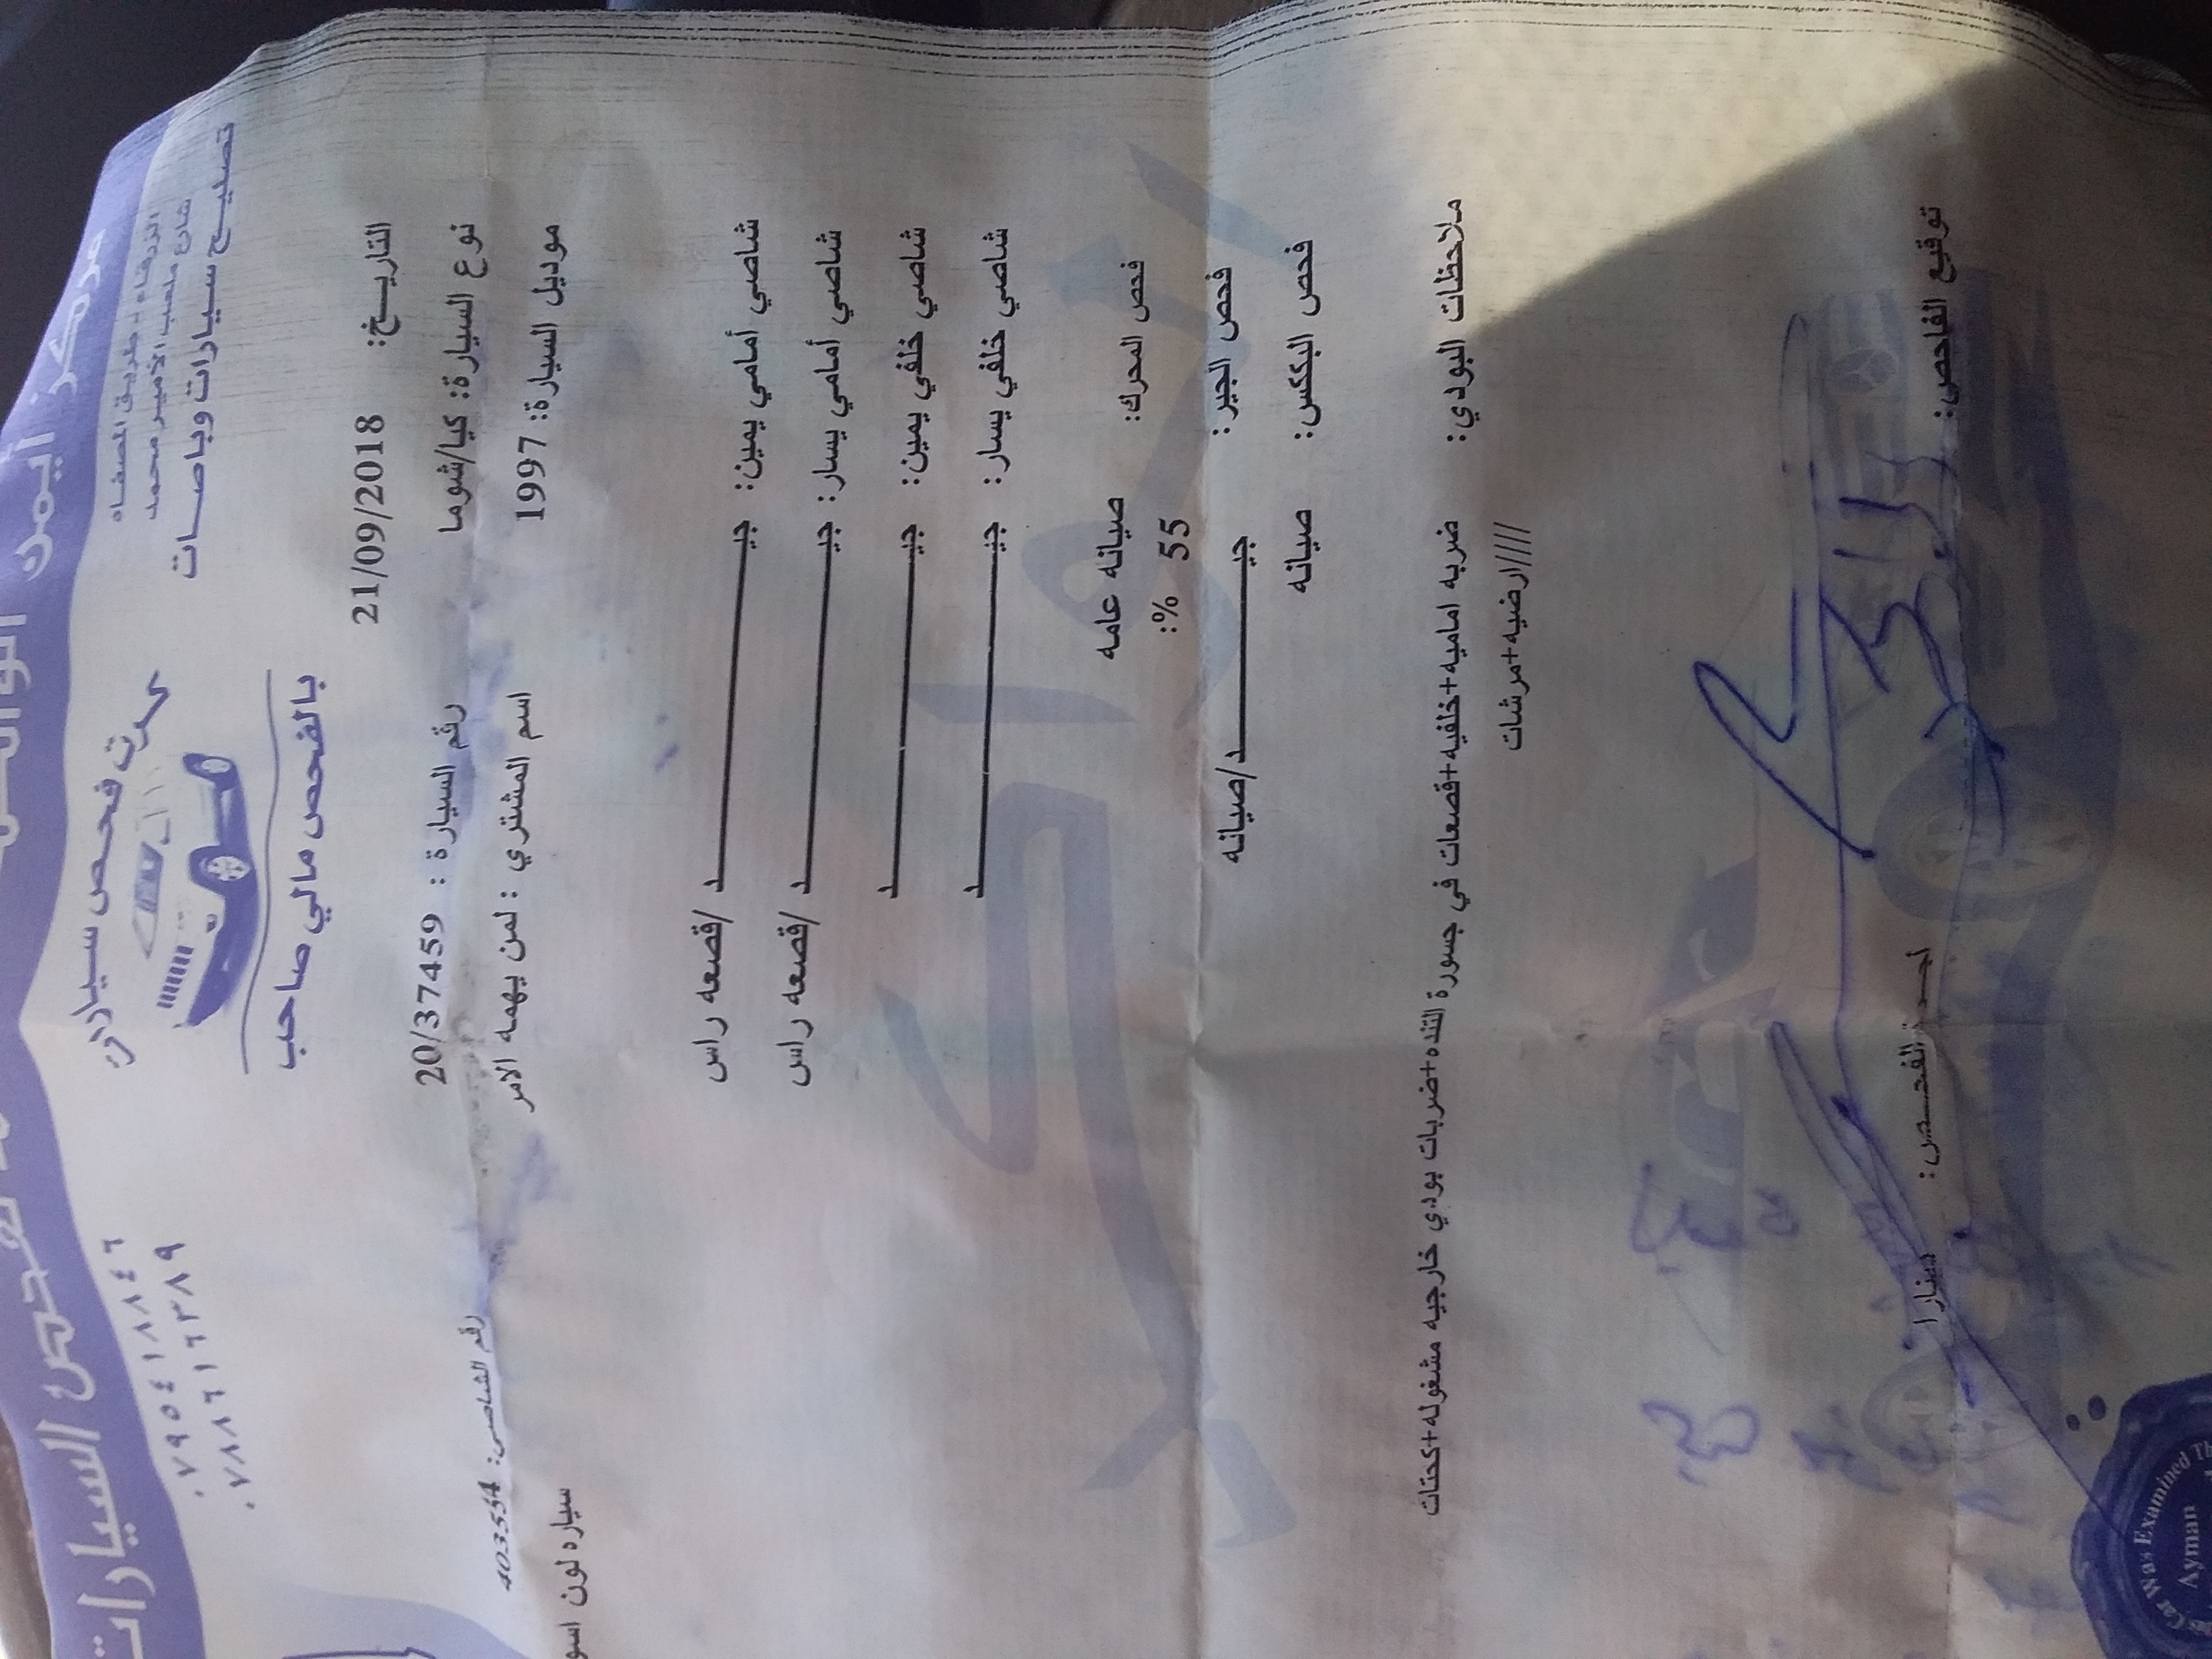 مركز أيمن
لفحص السيارات
الزرقاء - طريق المصفاه
شارع ملعب الأمير محمد
تصليح سيارات وباصات
فحص سيارات
٠٧٩٥٤١٨٨٤٦
٠٧٨٨٦١٦٣٨٩
بالفحص مالي صاحب
التاريخ: 21/09/2018
نوع السيارة: كيا/شوما رقم السيارة : 20/37459 رقم الشاصي:
موديل السيارة: 1997 اسم المشتري : لمن يهمه الامر
سياره لون
شاصي أمامي يمين: جيــــــــد /قصعه راس
شاصي أمامي يسار: جيــــــــد /قصعه راس
شاصي خلفي يمين: جيــــــــد
شاصي خلفي يسار: جيــــــــد
فحص المحرك: صيانه عامه
55 %:
فحص الجير: جيــــــــد/صيانه
فحص البككس: صيانه
ملاحظات البودي: ضربه اماميه+خلفيه+قصعات في جسورة التنده+ضربات بودي خارجيه مشغوله+كحتات
/////ارضيه+مرشات
توقيع الفاحص: أجــرة الفحــص: دينارا
Car Was Examined
Ayman